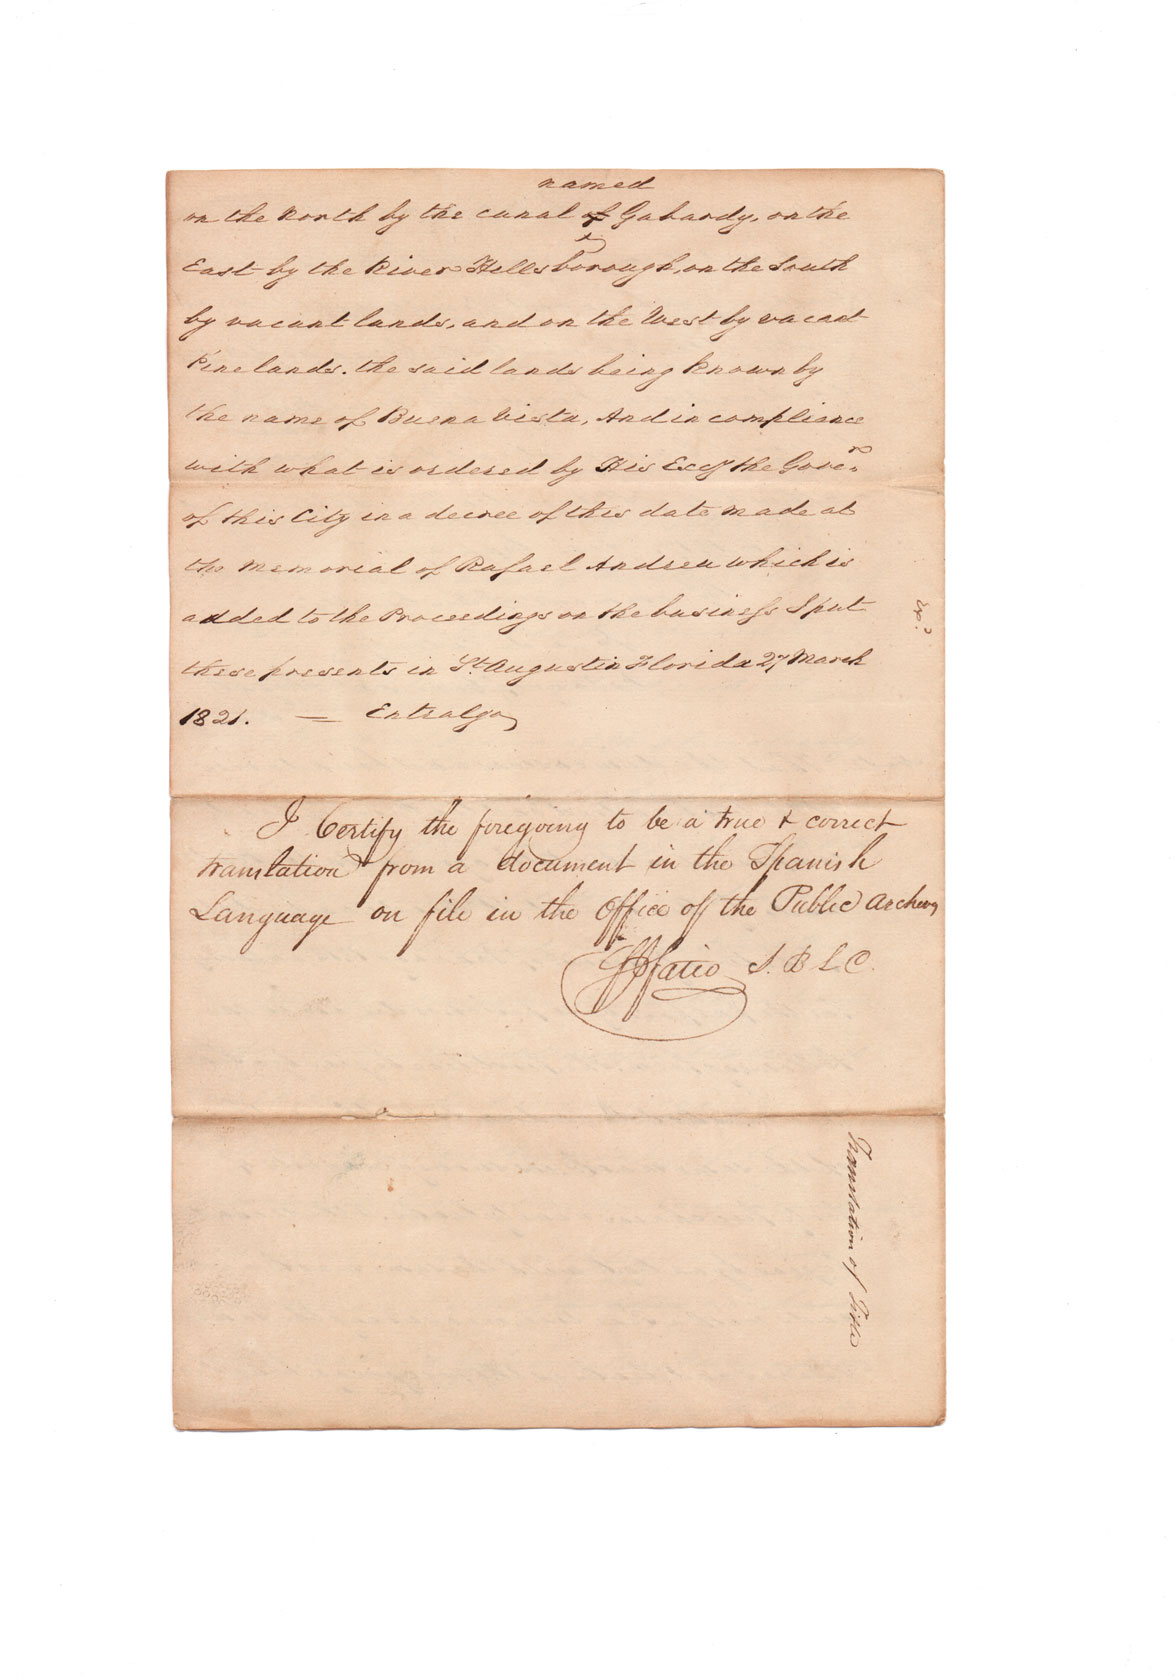 named
on the North by the canal of Gabardy, on the
East by the River Hillsborough, on the South
by vacant lands, and on the West by vacant
Pine lands. the said lands being known by
the name of Buena Vista, And in compliance
with what is ordered by His Excy the Gove.r
of this City in a decree of this date made at
the Memorial of Rafael Andreu which is
added to the Proceedings on the business I put
these presents in St. Augustin Florida 27 March
1821. — Entralgo
I Certify the foregoing to be a true & correct
translation from a document in the Spanish
Language on file in the Office of the Public Archives
F J Fatio S. B L C.
Translation of Title